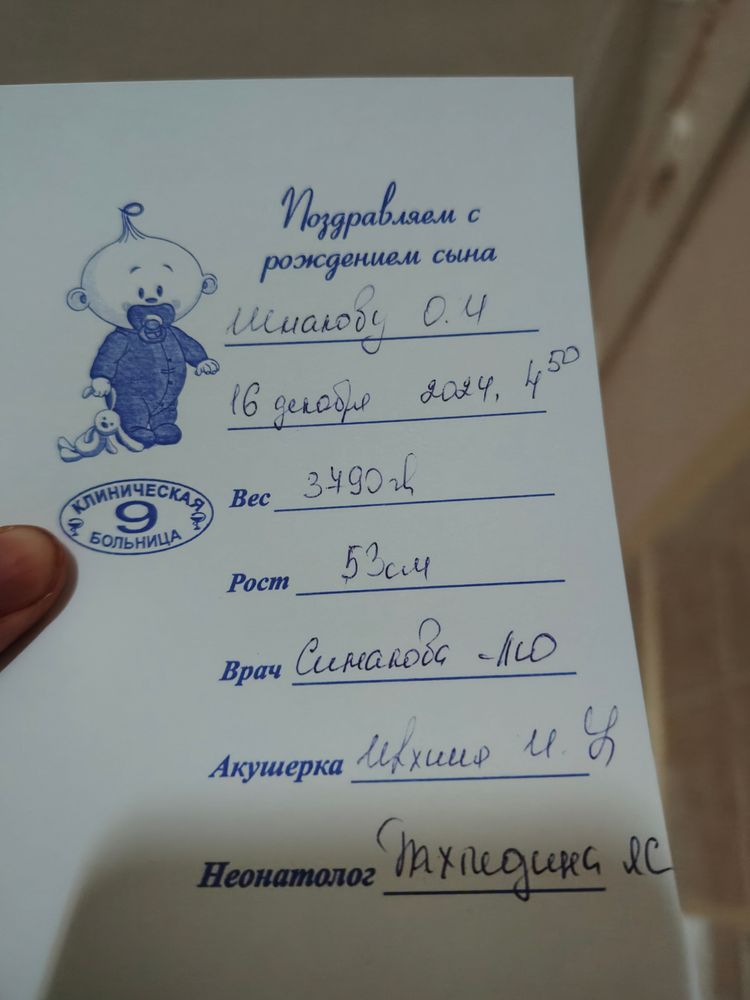 Поздравляем с
рождением сына
О.И
16 декабря 2024, 4 50
КЛИНИЧЕСКАЯ
9
БОЛЬНИЦА
Вес 3790 г
Рост 53см
Врач Симакова
Акушерка И.
Неонатолог ЯС